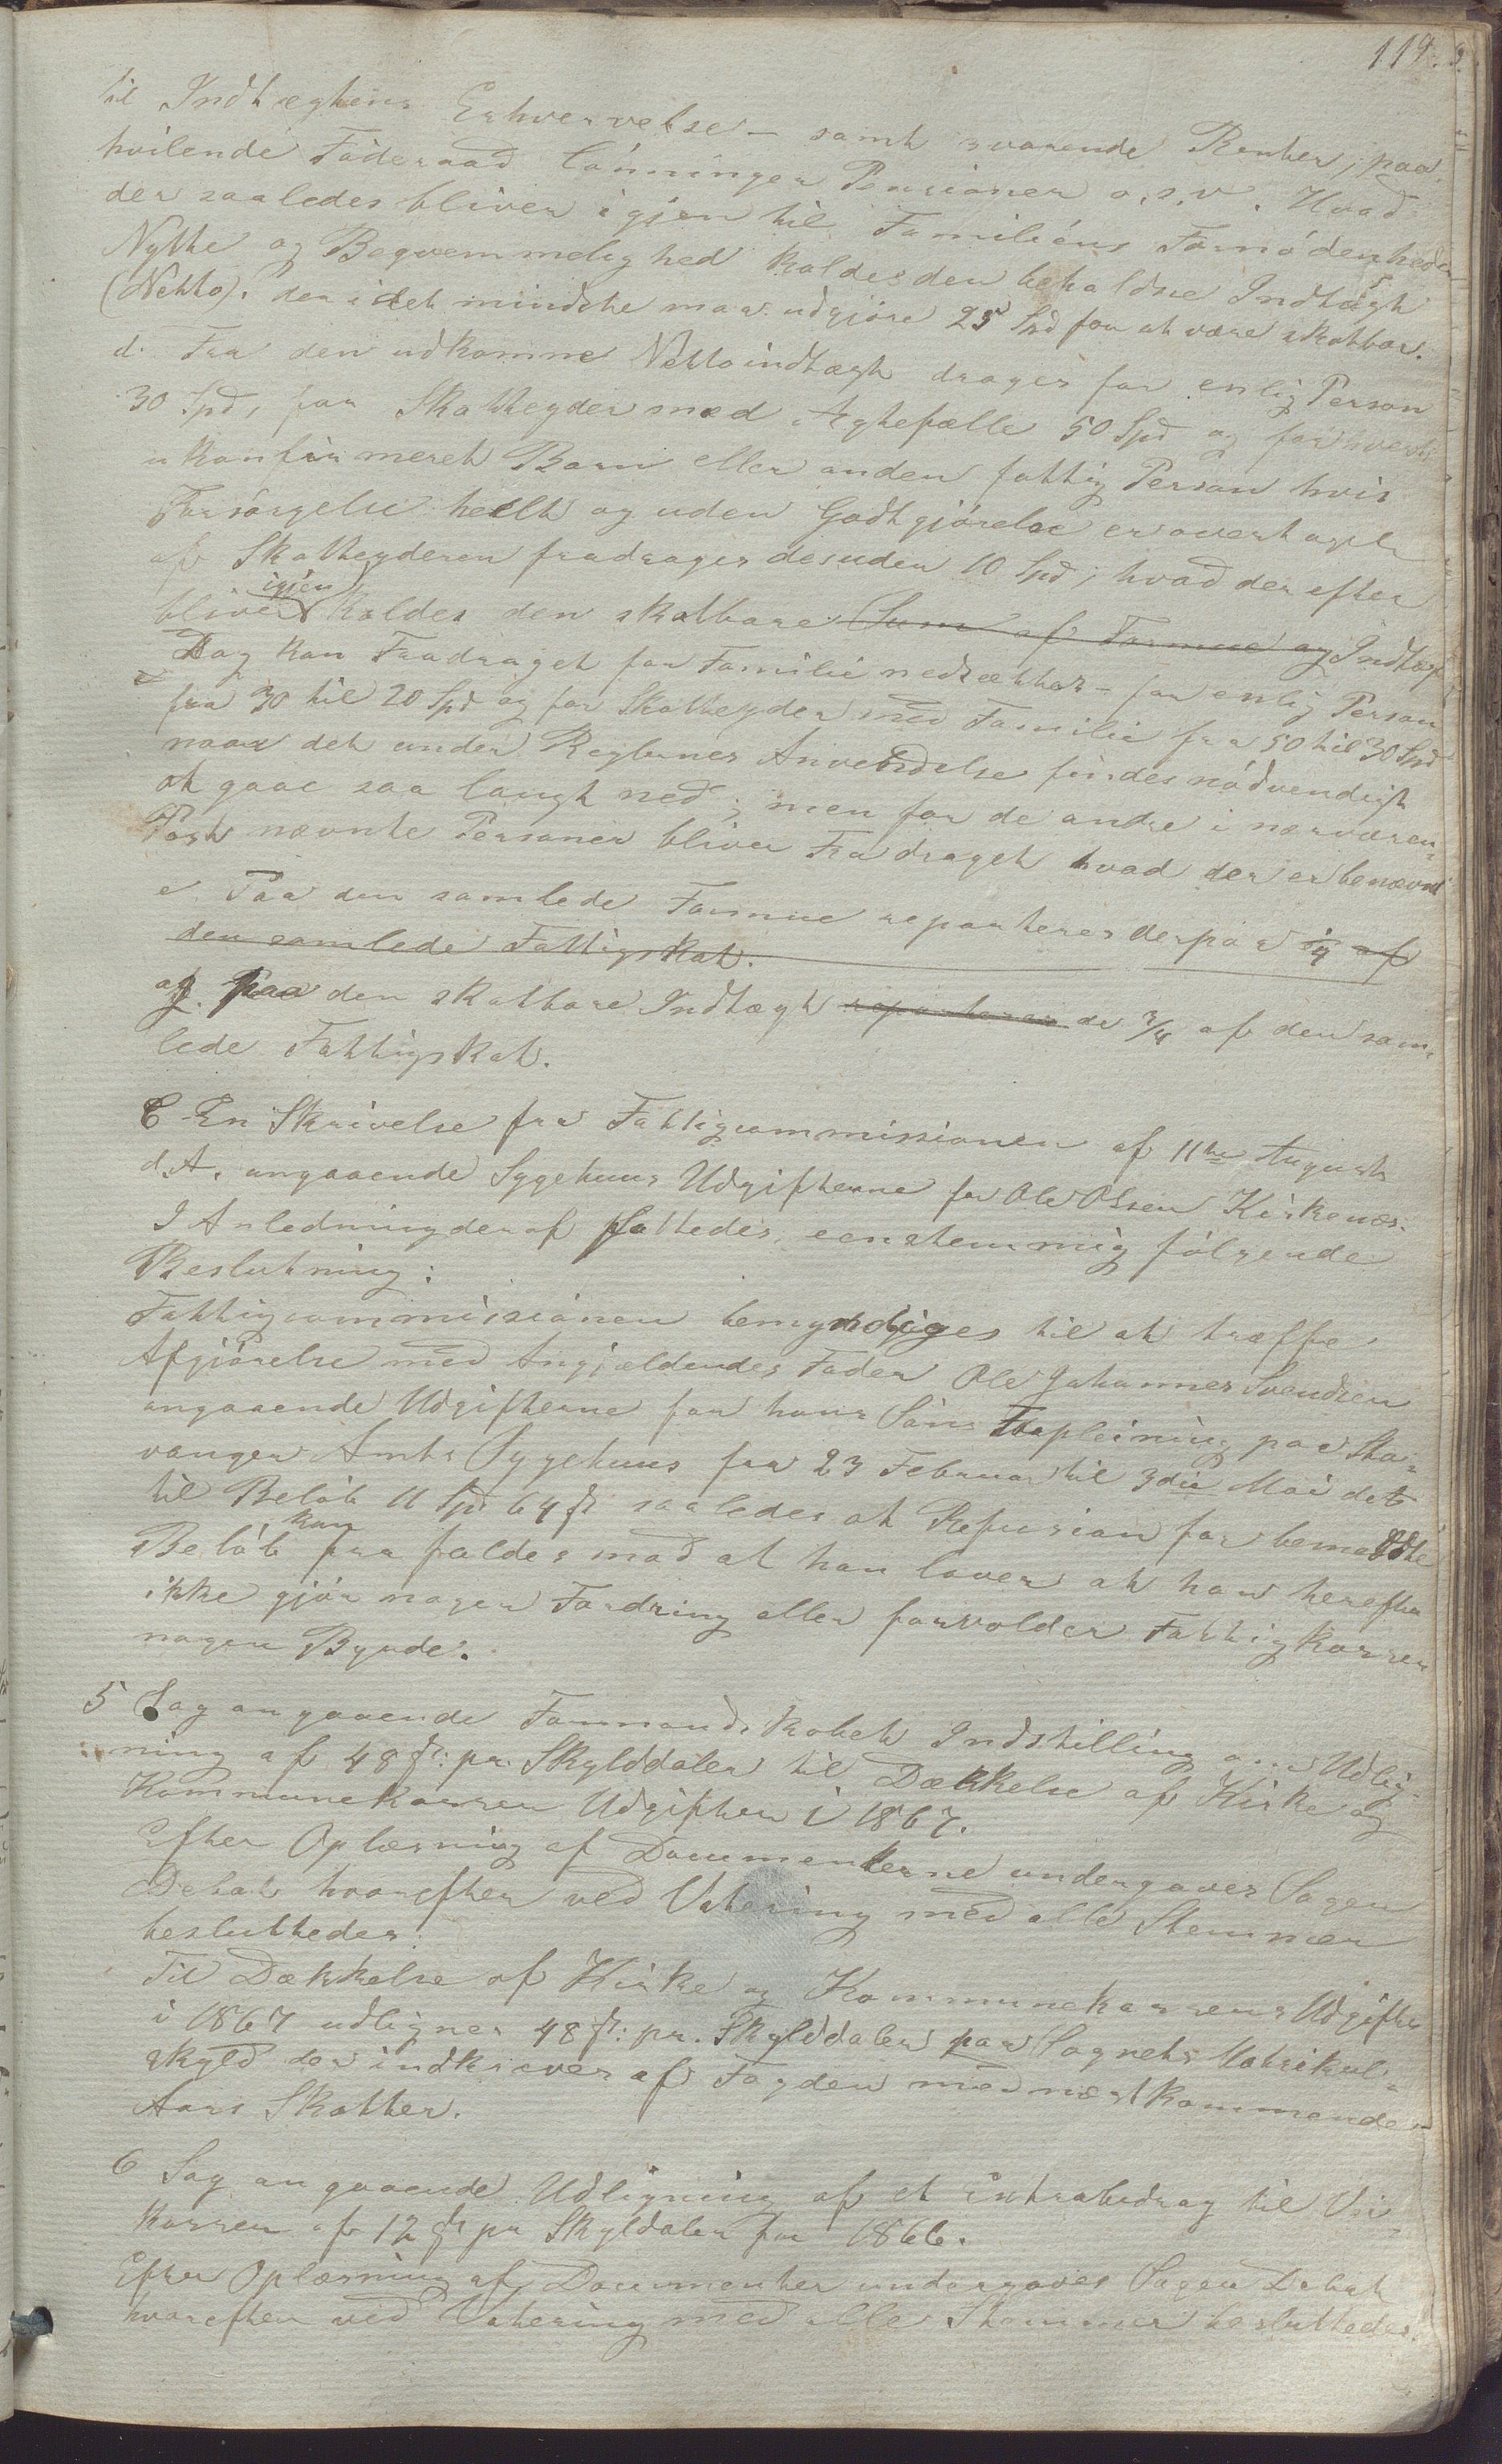 119.
til Indtægtens Erhvervelse – samt svarende Renter, paa-
hvilende Föderaad Lönninger Pensioner o.s.v. Hvad
der saaledes bliver igjen til Familiens Fornödenheder
Nytte og Beqvemmelighed kaldes den beholdne Indtægt
(Netto). der i det mindste maa udgjöre 25 Spd for at være skatbar.
d. Fra den udkomne Nettoindtægt drages for enlig Person
30 Spd, for Skatteyder med Ægtefælle 50 Spd og for hvert
ukonfirmeret Barn eller anden fattig Person hvis
Forsörgelse heelt og uden Godtgjörelse er overtaget
af Skatteyderen fradrages desuden 10 Spd; hvad der efter
igjen
bliver kaldes den skatbare Sum af Formue og Indtægt
Dog kan Fradraget for Familie nedsættes – for enlig Person
fra 30 til 20 Spd og for Skatteyder med Familie fra 50 til 30 Spd
naar det under Reglernes Anvendelse findes nödvendigt
at gaae saa langt ned; men for de andre i nærværen-
Post nævnte Personer bliver Fradraget hvad der er benævnt
e. Paa den samlede Formue reparteres derpaa 1/4 af
den samlede Fattigskat.
og paa den skatbare Indtægt reparteres de 3/4 af den sam-
lede Fattigskat.
C En Skrivelse fra Fattigcommissionen af 11te August
d.A. angaaende Sygehuus Udgifterne for Ole Olsen Kirkenæs.
I Anledning deraf fattedes eenstemmig fölgende
Beslutning:
Fattigcommissionen bemyndiges til at træffe
Afgjörelse med Angjældendes Fader Ole Johannes Svendsen
angaaende Udgifterne for hans Söns Forpleining paa Sta-
vanger Amts Sygehuus fra 23 Februar til 3die Mai dets
til Belöb 11 Spd 64 ß saaledes at Refusion for bemeldte
kan
Belöb frafaldes mod at han lover at han herefter
ikke gjör nogen Fordring eller forvolder Fattigkassen
nogen Byrde.
5 Sag angaaende Formandskabets Indstilling om Udlig-
ning af 48 ß: pr. Skylddaler til Dækkelse af Kirke og
Kommunekassen Udgifter i 1867.
Efter Oplæsning af Documenterne undergaves Sagen
Debat hvorefter ved Votering med alle Stemmer
besluttedes:
Til Dækkelse af Kirke og Kommunekassens Udgifter
i 1867 udlignes 48 ß: pr. Skylddaler paa Sognets Matrikul-
skyld der indkræves af Fogden med næstkommende
Aars Skatter.
6 Sag angaaende Udligning af et Extrabidrag til Vei-
kassen af 12 ß pr Skyldaler for 1866.
Efter Oplæsning af Documenter undergaves Sagen Debat
hvorefter ved Votering med alle Stemmer besluttedes.